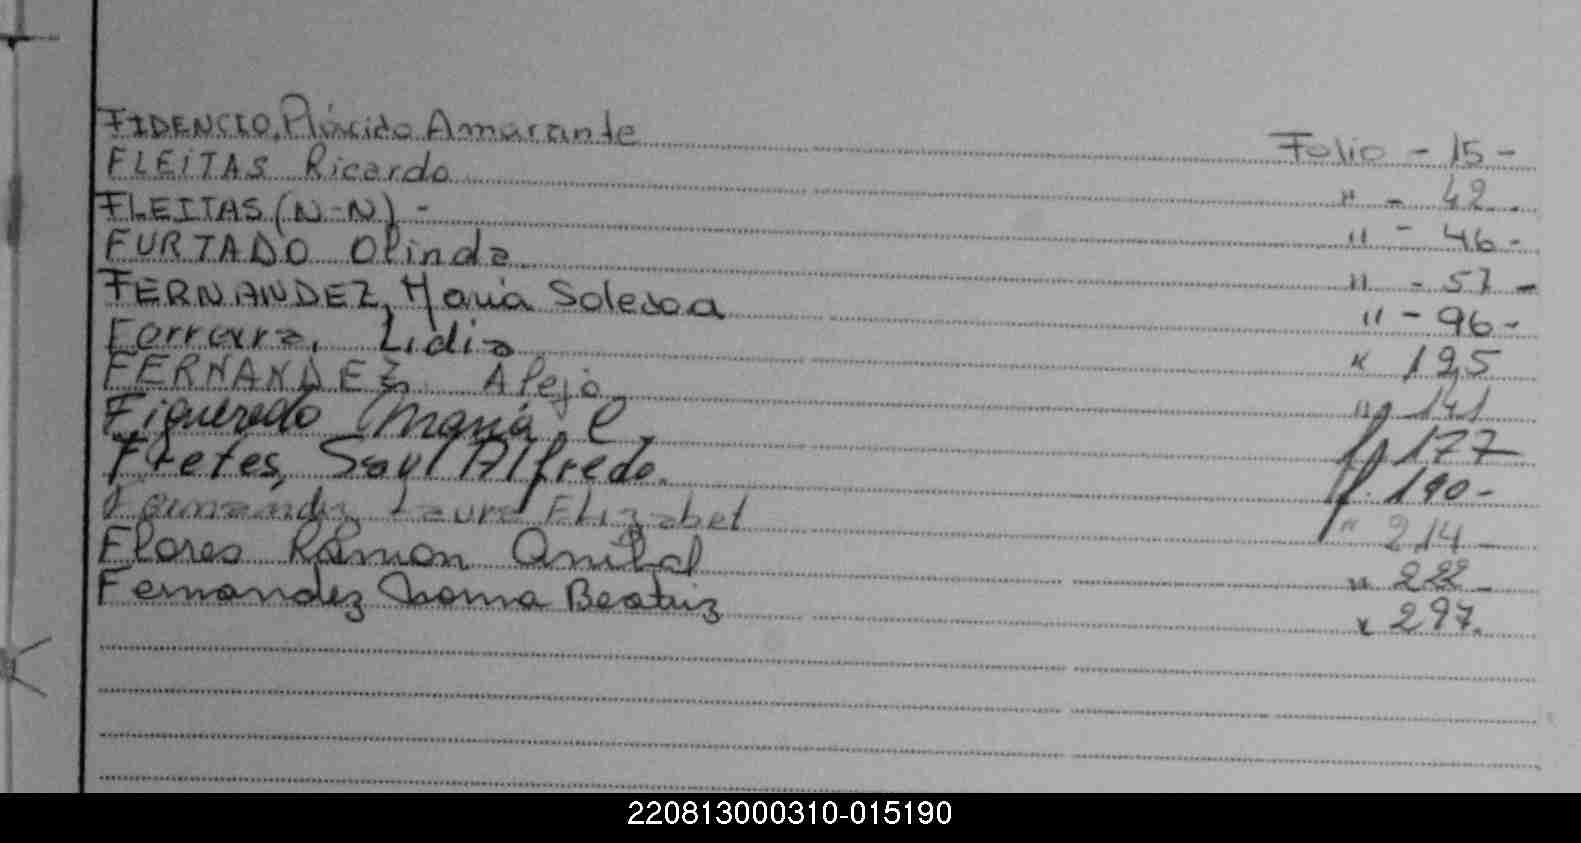 FIDENCIO, Plácido Amarante Folio - 15 -
FLEITAS Ricardo " - 42 -
FLEITAS (N-N) - " - 46 -
FURTADO Olinda " - 57 -
FERNANDEZ, Maria Soledad " - 96 -
Ferreira, Lidia " 125
FERNANDEZ Alejo " 141
Figueredo María E. f. 177
Fretes, Saul Alfredo. f. 190-
Fernandez Laura Elizabet " 214 -
Flores Ramon Anibal " 222 -
Fernandez Norma Beatriz " 297.
220813000310-015190